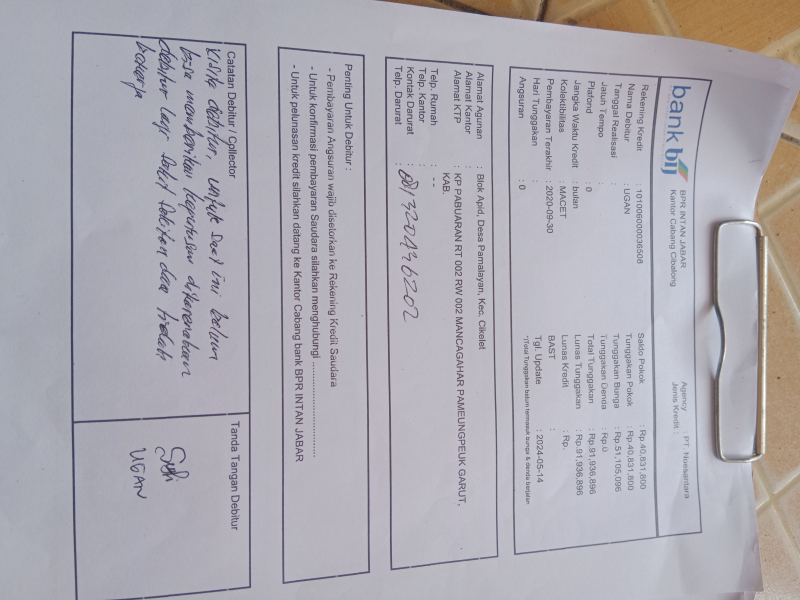 bank bij
BPR INTAN JABAR
Kantor Cabang Cibalong
Agency : PT. Noesantara
Jenis Kredit :
Rekening Kredit : 101006000036508
Nama Debitur : UGAN
Tanggal Realisasi :
Jatuh Tempo :
Plafond : 0
Jangka Waktu Kredit : bulan
Kolektibilitas : MACET
Pembayaran Terakhir : 2020-09-30
Hari Tunggakan :
Angsuran : 0
Saldo Pokok : Rp.40,831,800
Tunggakan Pokok : Rp.40,831,800
Tunggakan Bunga : Rp.51,105,096
Tunggakan Denda : Rp.0
Total Tunggakan : Rp.91,936,896
Lunas Tunggakan : Rp.91,936,896
Lunas Kredit : Rp.
BAST :
Tgl. Update : 2024-05-14
*)Total Tunggakan belum termasuk bunga & denda berjalan
Alamat Agunan : Blok Apid, Desa Pamalayan, Kec. Cikelet
Alamat Kantor :
Alamat KTP : KP PABUARAN RT 002 RW 002 MANCAGAHAR PAMEUNGPEUK GARUT,
KAB.
Telp. Rumah : --
Telp. Kantor :
Kontak Darurat :
Telp. Darurat :
Penting Untuk Debitur :
- Pembayaran Angsuran wajib disetorkan ke Rekening Kredit Saudara
- Untuk konfirmasi pembayaran Saudara silahkan menghubungi ....................
- Untuk pelunasan kredit silahkan datang ke Kantor Cabang bank BPR INTAN JABAR
Catatan Debitur / Collector
Visit debitur, untuk saat ini belum
bisa memberikan keputusan dikarenakan
debitur lagi sakit dan tidak
bekerja
Tanda Tangan Debitur
UGAN